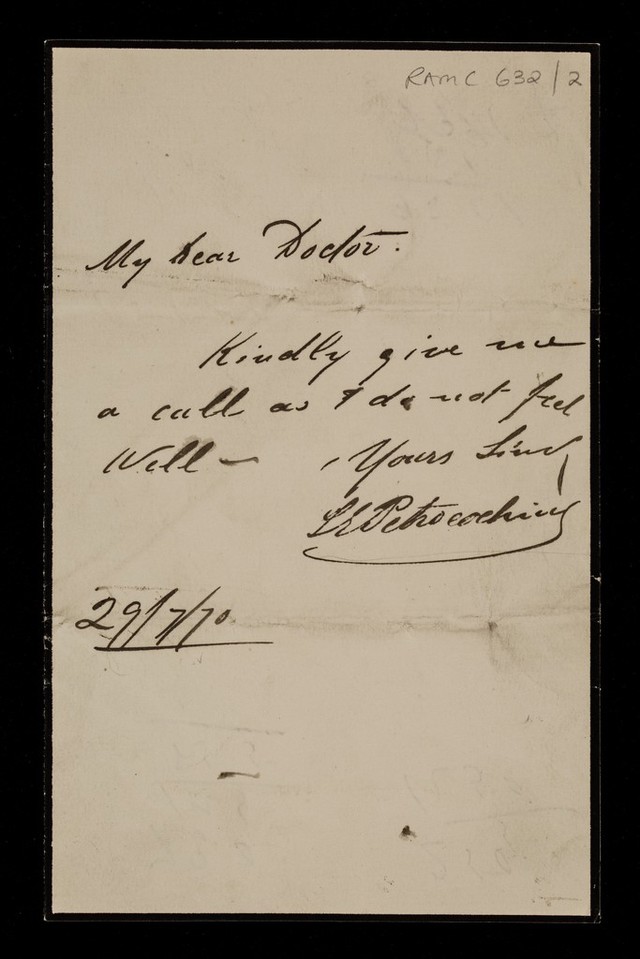 RAMC 632/2
My Dear Doctor.
Kindly give me
a call as I do not feel
Well — Yours Sincy
Petrocochino
29/7/70